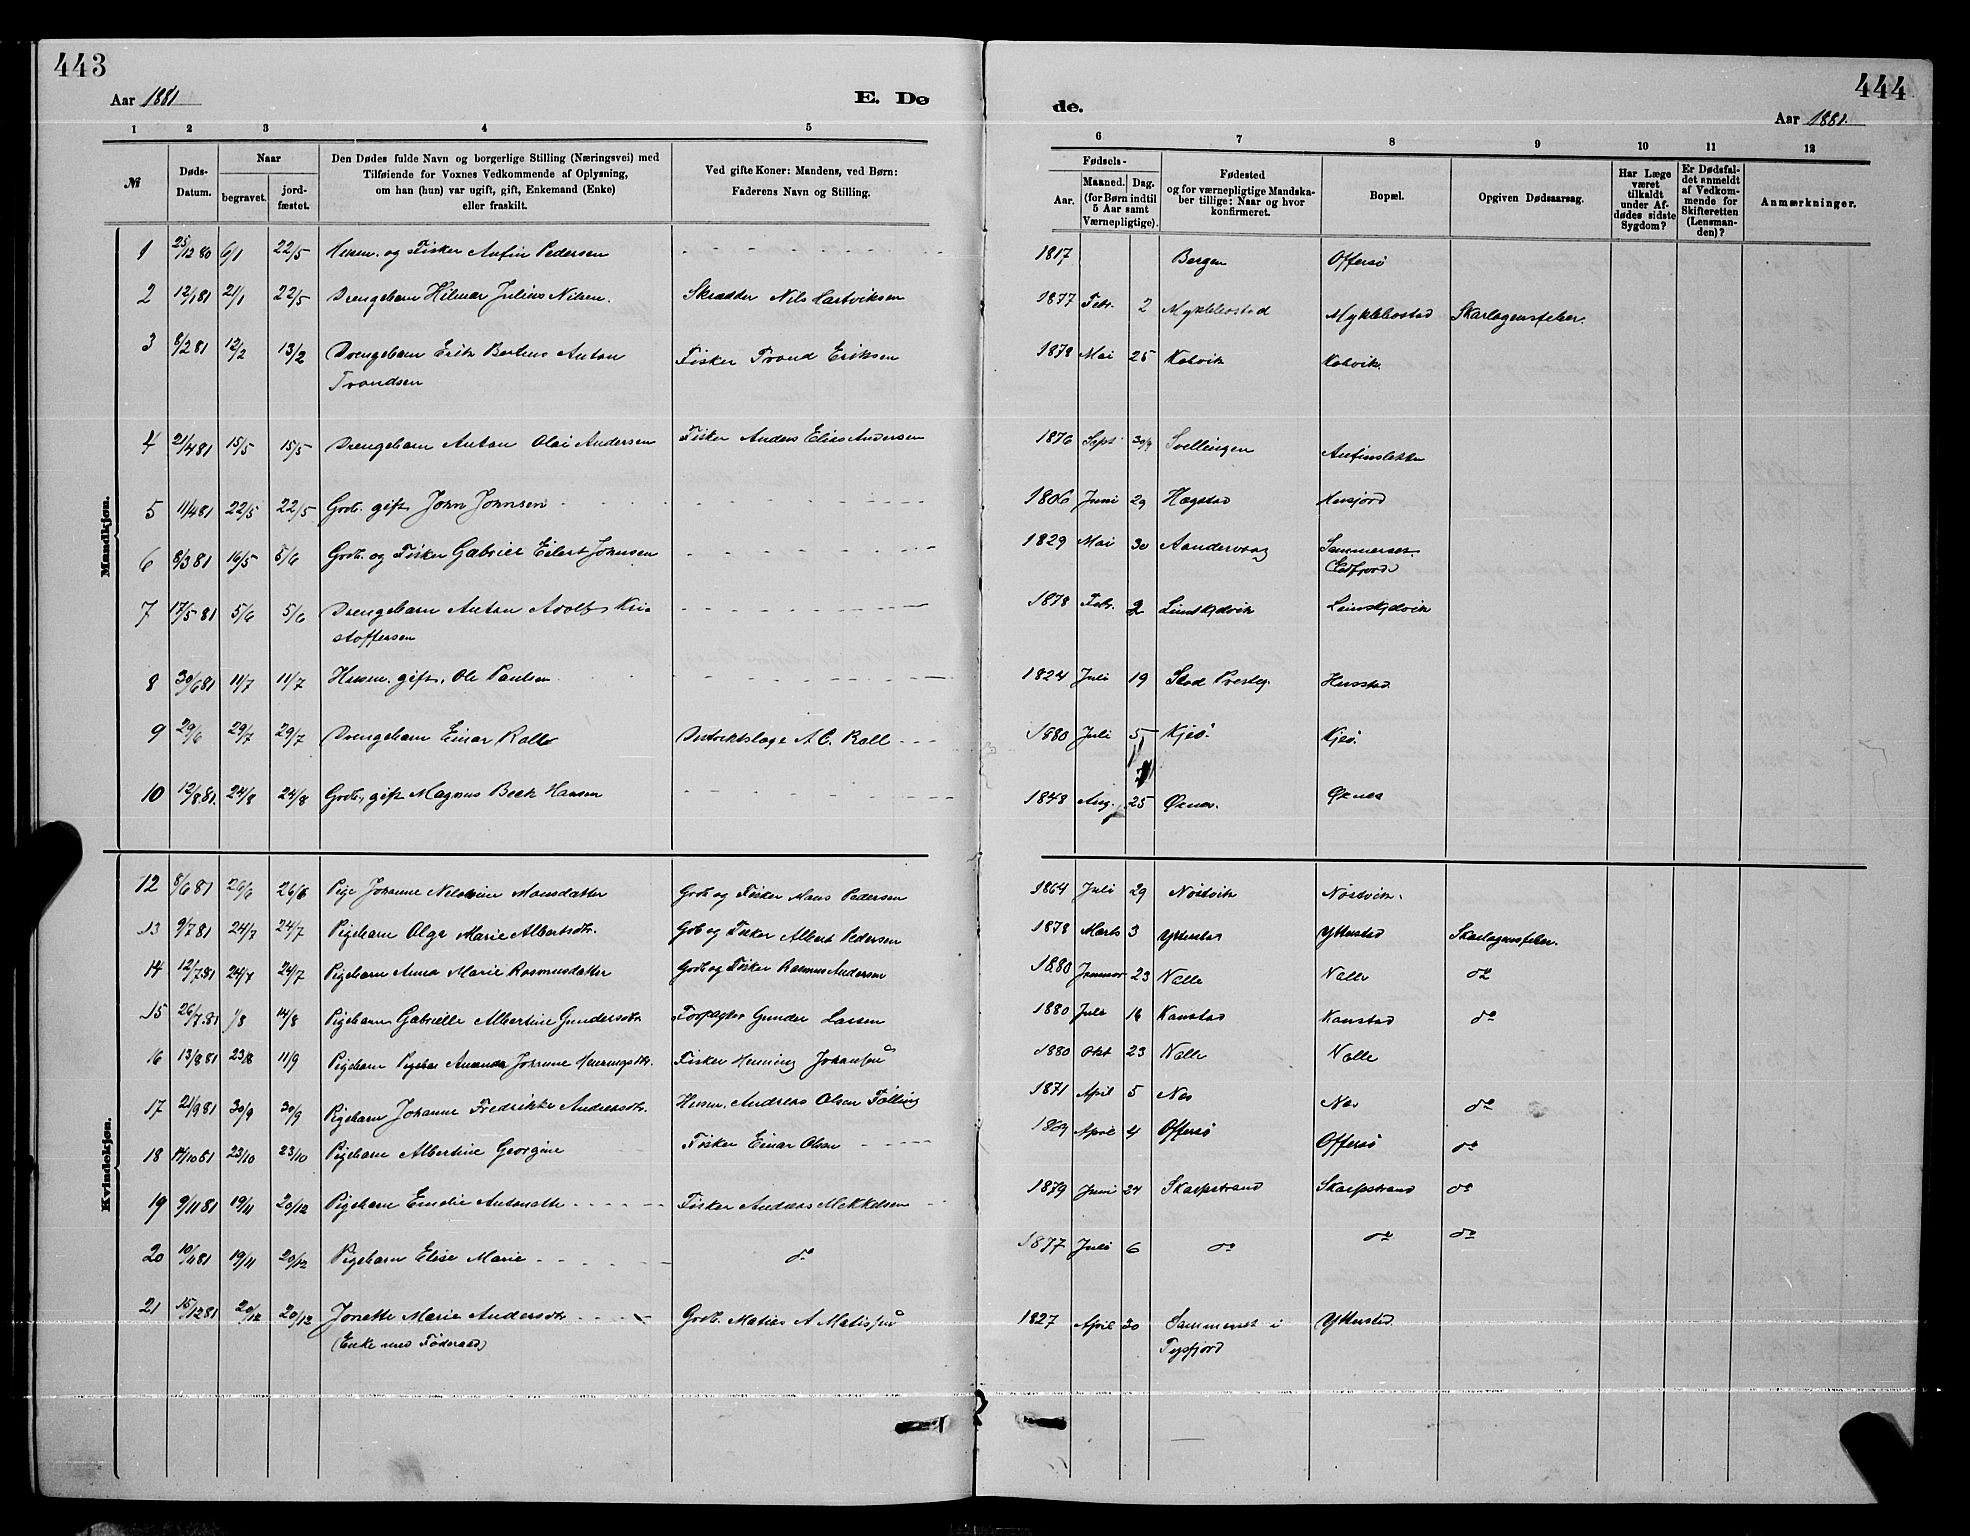 443
444
Aar 1881
E. Dø
de.
Aar 1881.
1 2 3 4 5
6 7 8 9 10 11 12
№
Døds-Datum.
Naar
begravet.
jord-fæstet.
Den Dødes fulde Navn og borgerlige Stilling (Næringsvei) med
Tilføiende for Voxnes Vedkommende af Oplysning,
om han (hun) var ugift, gift, Enkemand (Enke)
eller fraskilt.
Ved gifte Koner: Mandens, ved Børn:
Faderens Navn og Stilling.
Fødsels-
Aar.
Maaned. Dag.
(for Børn indtil
5 Aar samt
Værnepligtige).
Fødested
og for værnepligtige Mandska-
ber tillige: Naar og hvor
konfirmeret.
Bopæl.
Opgiven Dødsaarsag.
Har Læge
været
tilkaldt
under Af-
dødes sidste
Sygdom?
Er Dødsfal-
det anmeldt
af Vedkom-
mende for
Skifteretten
(Lensman-
den)?
Anmærkninger.
Mandkjøn.
1 25/12 80 6/1 22/5 Husm. og Fisker Anfin Pedersen 1817 Bergen Offersø
2 12/1 81 21/1 22/5 Drengebarn Hilmar Julius Nilsen. Skrædder Nils Hartviksen 1877 Febr. 2 Myklebostad Myklebostad Skarlagensfeber.
3 8/2 81 12/2 13/2 Drengebarn Erik Berteus Anton Fisker Trond Eriksen 1878 Mai 25 Kobvik Kobvik.
Trondsen
4 21/4 81 15/5 15/5 Drengebarn Anton Olai Andersen Fisker Anders Elias Andersen 1876 Sept 30/9 Svellingen Anfinslette
5 11/4 81 22/5 22/5 Grdb. gift John Johnsen 1806 Juni 29 Hægstad Husfjord
6 8/3 81 16/5 5/6 Grdb. og Fisker Gabriel Eilert Johnsen 1829 Mai 30 Aandervaag Sammerset
(Eidfjord)
7 17/5 81 5/6 5/6 Drengebarn Anton Adolf Kri- 1878 Febr. 2
stoffersen
8 30/6 81 11/7 11/7 Husm. gift, Ole Paulsen 1824 Juli 19 Stod Prestg.
9 29/6 29/7 29/7 Drengebarn Einar Roll Distriktslæge A. C. Roll 1880 Juli 5 Kjeø. Kjeø.
10 12/8 81. 24/8 24/8 Grdb., gift Magnus Beck Hansen 1848 Aug. 25 Øxnes. Øxnes
Kvindekjøn.
12 8/6 81 26/6 26/6 Pige Johanne Nelsine Mansdatter Grdb og Fisker Mans Pedersen 1864 Juli 29 Nøstvik Nøstvik.
13 9/7 81 24/7 24/7 Pigebarn Olga Marie Albertsdtr. Gdb og Fisker Albert Pedersen 1878 Marts 3 Ytterstad Ytterstad Skarlagensfeber.
14 12/7 81 24/7 24/7 Pigebarn Anna Marie Rasmusdatter Grdb og Fisker Rasmus Andersen 1880 Januar 23 Nalle Nalle do
15 26/7 81 /8 14/8 Pigebarn Gabrielle Albertine Gundersdtr Forpagter Gunder Larsen 1880 Juli 16 Kanstad Kanstad do
16 13/8 81 23/8 11/9 Pigebarn Amanda Johanne Henningsdtr. Fisker Henning Johansen 1880 Okt 23 Nalle Nalle
17 21/9 81 30/9 30/9 Pigebarn Johanne Fredrikke Andreasdtr. Husm. Andreas Olsen Følling 1871 April 5 Nes Nes do
18 14/10 81 23/10 23/10 Pigebarn Albertine Georgine Fisker Einar Olsen 1869 April 4 Offersø Offersø do
19 9/11 81 19/11 20/12 Pigebarn Emelie Antonette Fisker Andreas Mikkelsen 1879 Juni 24 Skarpstrand Skarpstrand do
20 10/11 81 19/11 20/12 Pigebarn Elise Marie do 1877 Juli 6 do do do
21 15/12 81 20/12 20/12 Jonette Marie Andersdtr Grdb. Matias A Matissen 1827 April 30 Sammerset i Ytterstad.
(Enke med Føderaad) Tysfjord